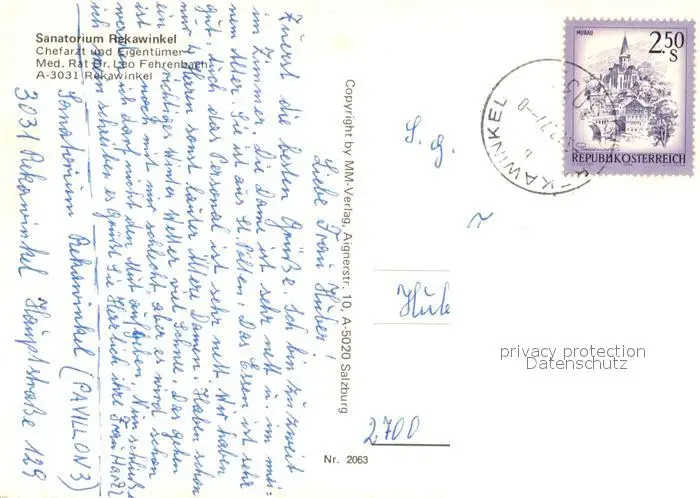 Sanatorium Rekawinkel
Chefarzt und Eigentümer
Med. Rat Dr. Leo Fehrenbach
A-3031 Rekawinkel
Liebe Frau Huber!
Zuerst die besten Grüße. Ich bin zu zweit
im Zimmer. Die Dame ist sehr nett u. im mei-
nem Alter. Sie ist aus St. Pölten. Das Essen ist sehr
gut, auch das Personal ist sehr nett. Wir haben
nur 4 Herren sonst lauter ältere Damen. Haben schon
ein richtiges Winter Wetter viel Schnee. Das gehen
ist noch mit mir schlecht, aber es wird schon
werden ich darf nicht den Mut aufgeben. Nun schluß
ich schreiben es grüßt Sie Herzlich ihre Frau
Sanatorium Rekawinkel (PAVILLON 3)
3031 Rekawinkel Hauptstraße 129
Copyright by MM-Verlag, Aignerstr. 10, A-5020 Salzburg
Nr. 2063
S. g.
Hube
2700
MURAU
2.50
S
REPUBLIK ÖSTERREICH
KAWINKEL
privacy protection
Datenschutz